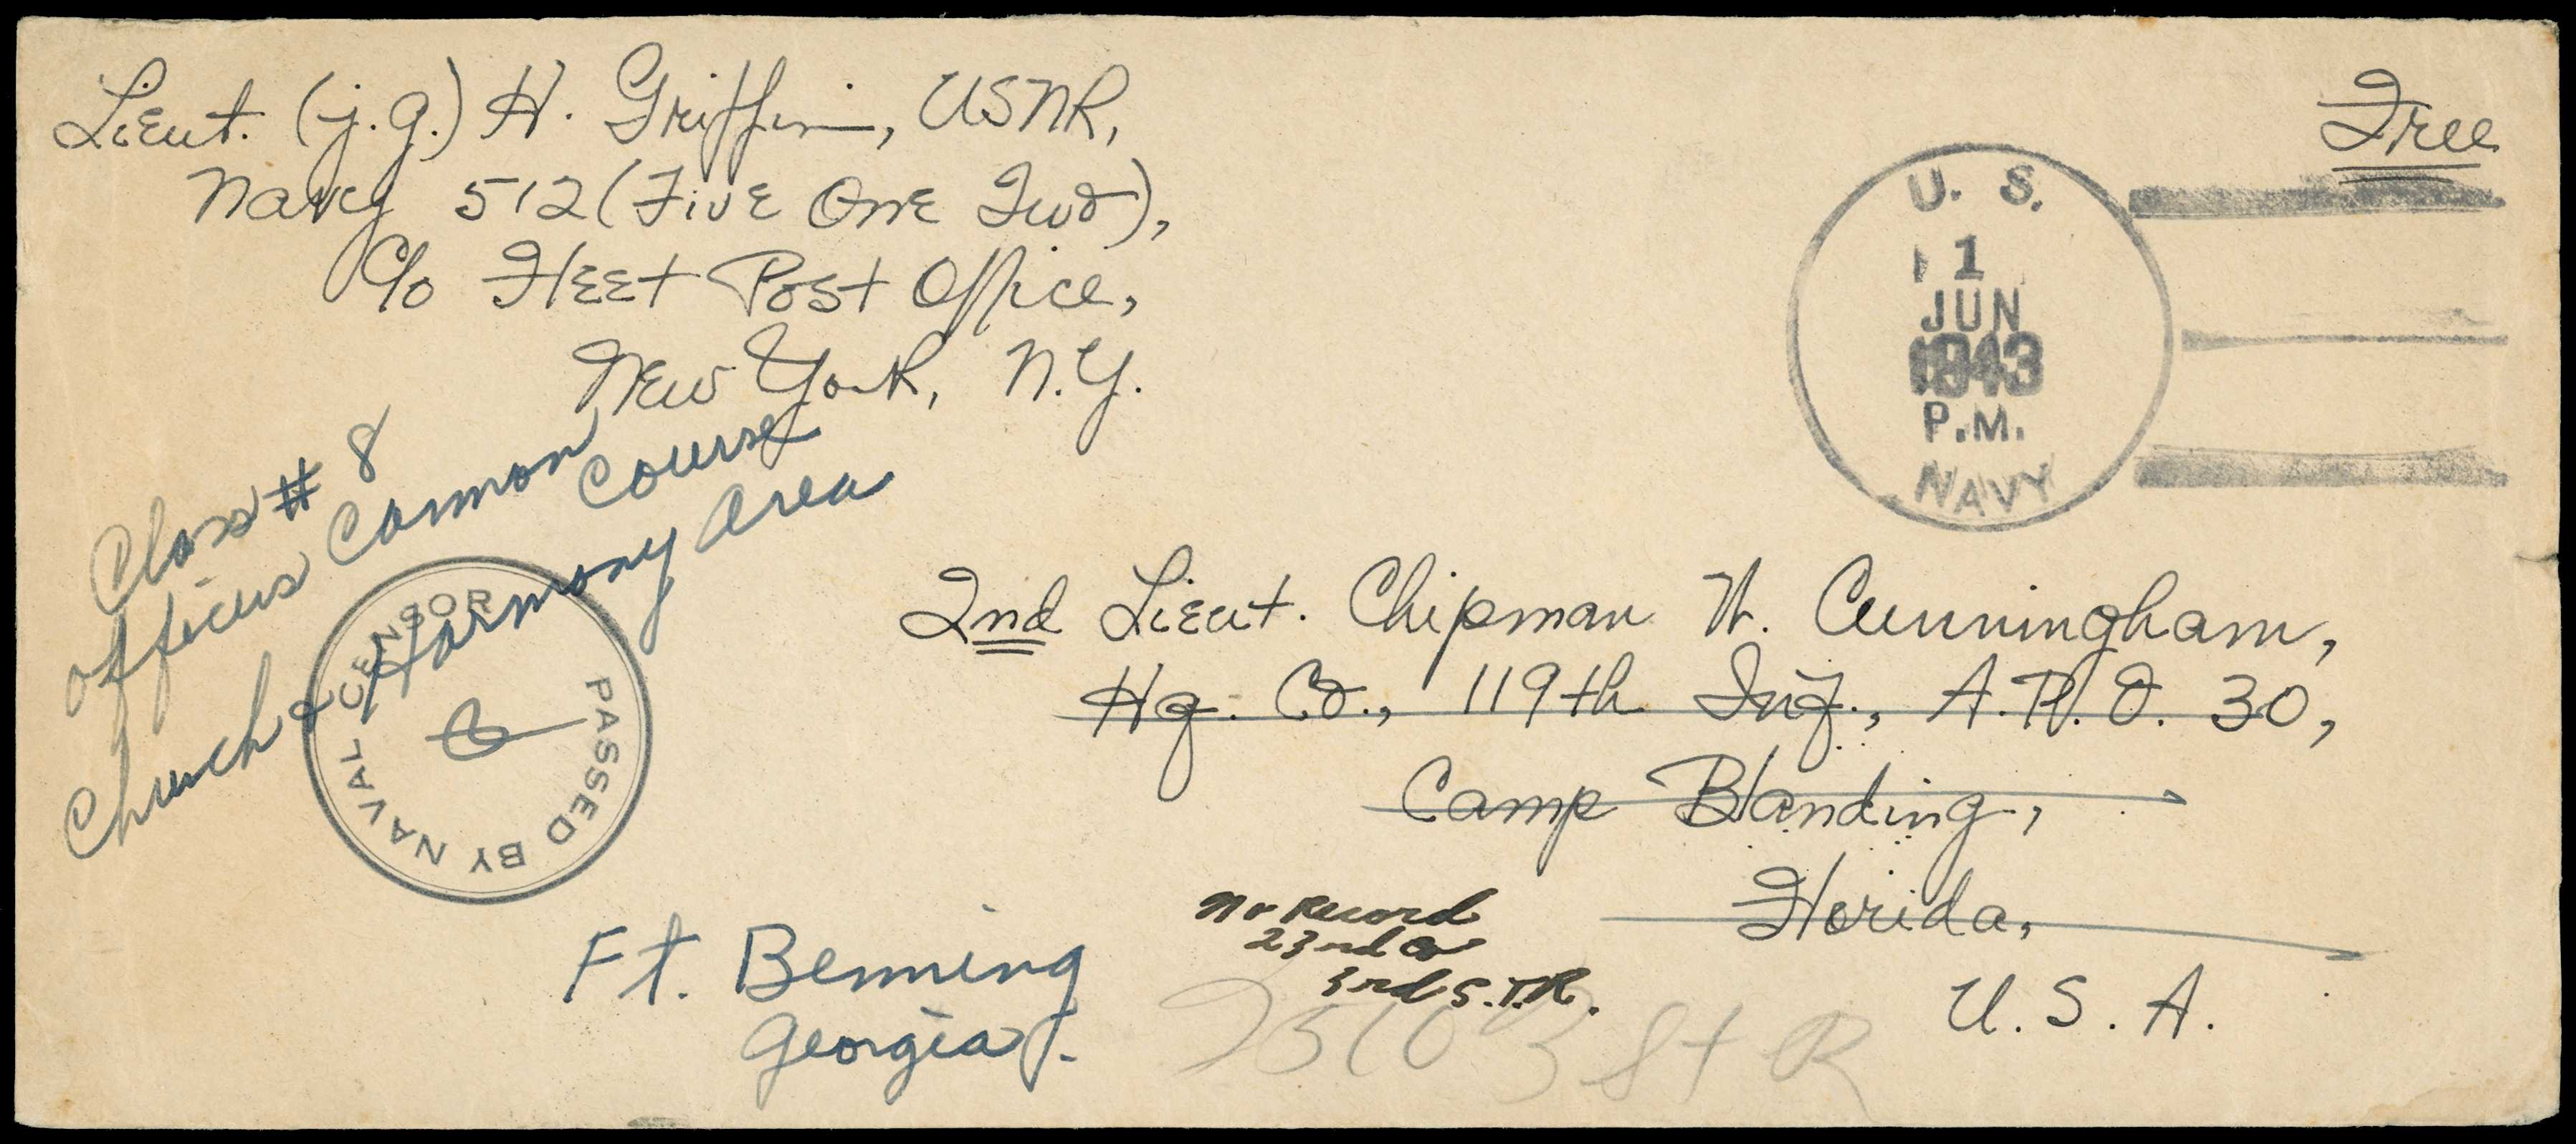 Lieut. (j.g.) H. Griffin, USNR,
Navy 512 (Five One Two),
c/o Fleet Post Office,
New York, N.Y.
Free
U. S.
1
JUN
1943
P.M.
NAVY
Class # 8
Officers Cannon
Course
Church & Harmony Area
PASSED BY NAVAL CENSOR
2nd Lieut. Chipman W. Cunningham,
Hq. Co., 119th Inf., A.P.O. 30,
Camp Blanding,
Florida,
U. S. A.
Ft. Benning
Georgia.
No Record
23rd Co
3rd S.T.R.